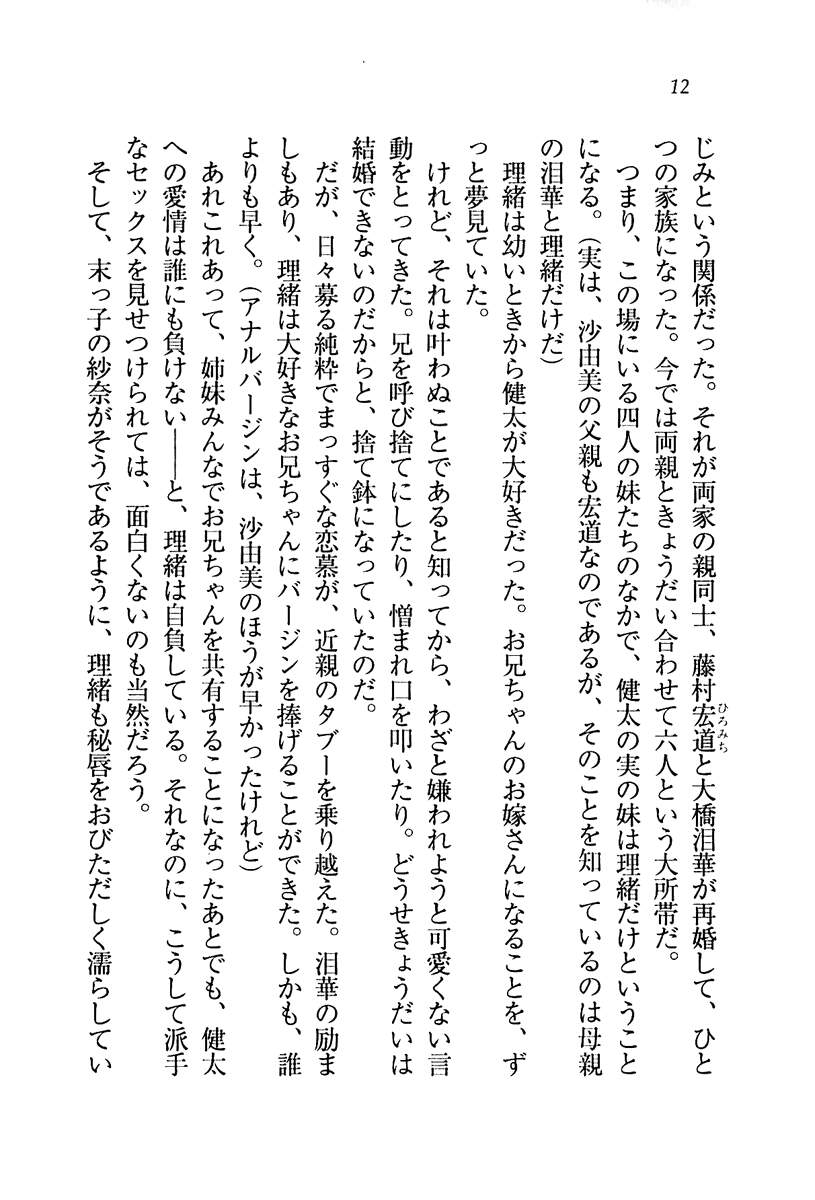 12
じみという関係だった。それが両家の親同士、藤村宏道と大橋泪華が再婚して、ひと
ひろみち
つの家族になった。今では両親ときょうだい合わせて六人という大所帯だ。
つまり、この場にいる四人の妹たちのなかで、健太の実の妹は理緒だけということ
になる。（実は、沙由美の父親も宏道なのであるが、そのことを知っているのは母親
の泪華と理緒だけだ）
理緒は幼いときから健太が大好きだった。お兄ちゃんのお嫁さんになることを、ず
っと夢見ていた。
けれど、それは叶わぬことであると知ってから、わざと嫌われようと可愛くない言
動をとってきた。兄を呼び捨てにしたり、憎まれ口を叩いたり。どうせきょうだいは
結婚できないのだからと、捨て鉢になっていたのだ。
だが、日々募る純粋でまっすぐな恋慕が、近親のタブーを乗り越えた。泪華の励ま
しもあり、理緒は大好きなお兄ちゃんにバージンを捧げることができた。しかも、誰
よりも早く。（アナルバージンは、沙由美のほうが早かったけれど）
あれこれあって、姉妹みんなでお兄ちゃんを共有することになったあとでも、健太
への愛情は誰にも負けない――と、理緒は自負している。それなのに、こうして派手
なセックスを見せつけられては、面白くないのも当然だろう。
そして、末っ子の紗奈がそうであるように、理緒も秘唇をおびただしく濡らしてい